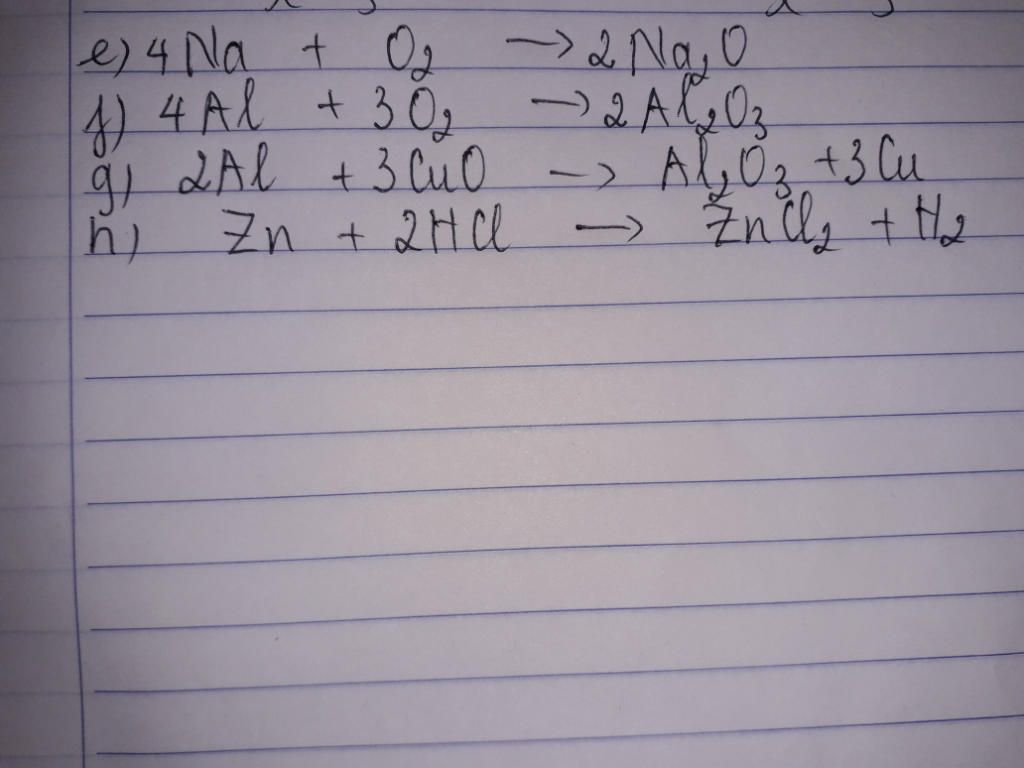 e) 4 Na + O₂ → 2 Na₂O
f) 4 Al + 3 O₂ → 2 Al₂O₃
g) 2Al + 3 CuO → Al₂O₃ + 3 Cu
h) Zn + 2HCl → ZnCl₂ + H₂